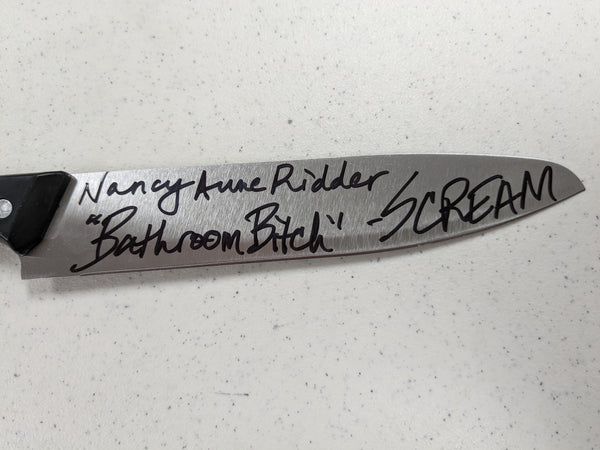 Nancy Anne Ridder
"Bathroom Bitch" - SCREAM